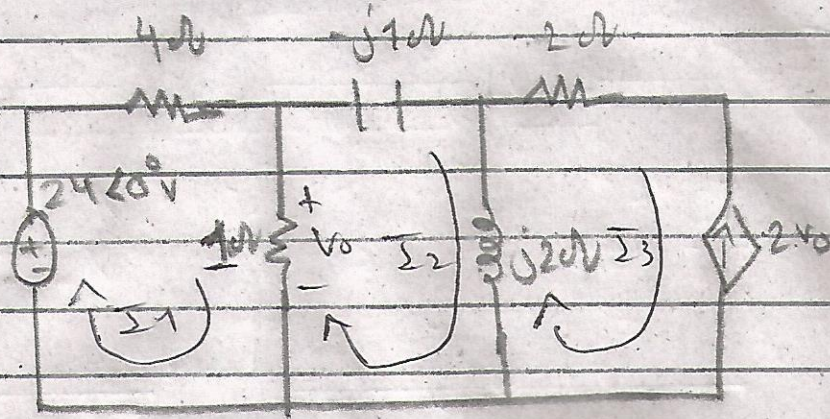 4Ω -j1Ω 2Ω
24∠0°V
+
-
1Ω
+
Vo
-
I1
I2
j2Ω
I3
2Vo